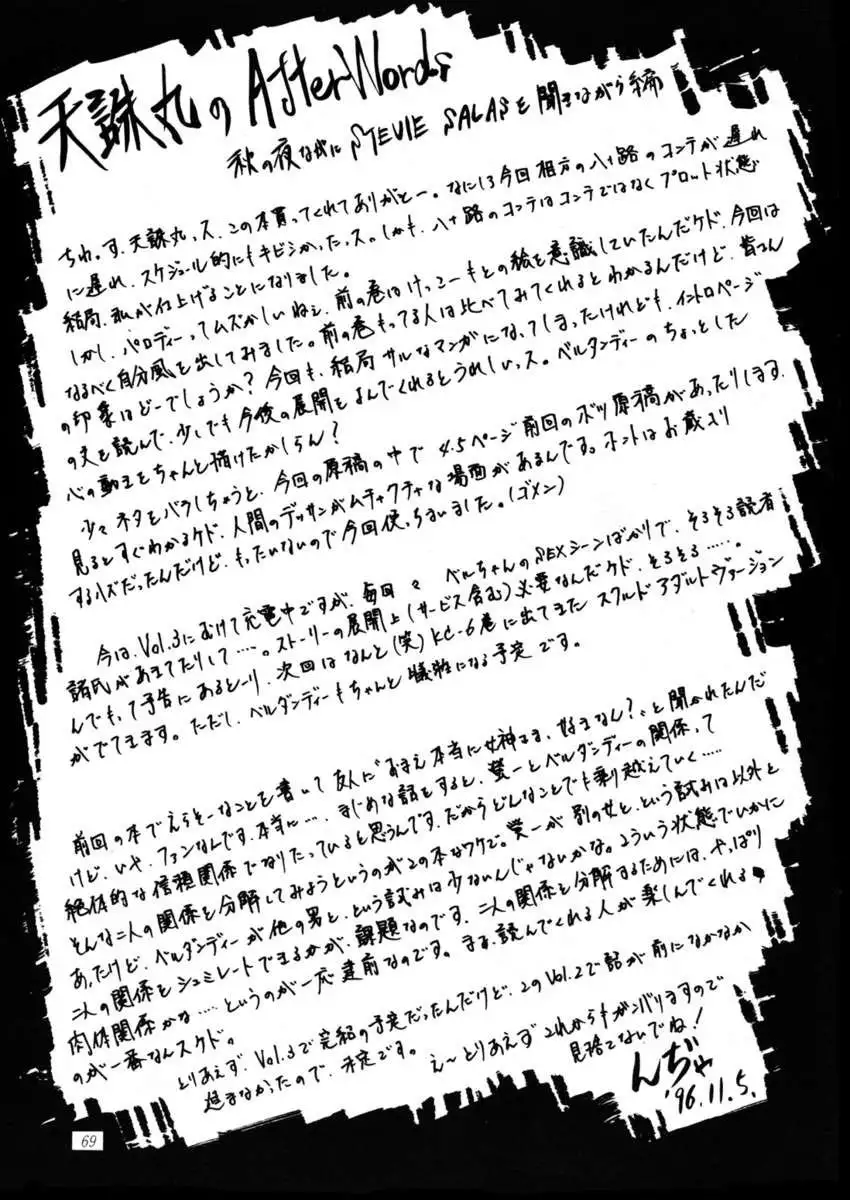 天誅丸の After Words
秋の夜ながに STEVIE SALASを聞きながら 編
ちわーす、天誅丸っス、この本買ってくれてありがとー。なにしろ今回相方の八十路のコンテが遅れ
に遅れ、スケジュール的にもキビシかったっス。しかも、八十路のコンテはコンテではなくプロット状態
結局、私が仕上げることになりました。
しかし、パロディーってムズかしいねぇ、前の巻はけっこーもとの絵を意識していたんだケド、今回は
なるべく自分風を出してみました。前の巻もってる人は比べてみてくれるとわかるんだけど、皆さん
の印象はどーでしょうか？今回も、結局サルなマンガになってしまったけれども、イントロページ
の文を読んで、少しでも今後の展開をよんでくれるとうれしいっス。ベルダンディーのちょっとした
心の動きをちゃんと描けたかしらん？
少々ネタをバラしちゃうと、今回の原稿の中で 4.5ページ前回のボツ原稿があったりします、
見るとすぐわかるケド、人間のデッサンがムチャクチャな場面があるんです。ホントはお蔵入り
するハズだったんだけど、もったいないので今回使っちまいました。（ゴメン）
今は、Vol.3にむけて充電中ですが、毎回々 ベルちゃんのSEXシーンばかりで、そろそろ読者
諸氏があきてたりして……。ストーリーの展開上（サービス含む）必要なんだケド、そろそろ……。
んでもって予告にあるとーり、次回はなんと（笑）KC-6巻に出てきた スクルド アダルトヴァージョン
がでてきます。ただし、ベルダンディーもちゃんと犠牲になる予定です。
前回の本でえらそーなことを書いて友人に“おまえ本当に女神さま、好きなん？”と聞かれたんだ
けど、いや、ファンなんです、本当に…、まじめな話をすると、螢一とベルダンディーの関係って
絶体的な信頼関係でなりたっていると思うんです、だからどんなことでも乗り越えていく……
そんな二人の関係を分解してみようというのがこの本なワケで。螢一が 別の女と、という試みは以外と
あったけど、ベルダンディーが他の男と、という試みは少ないんじゃないかな。こういう状態でいかに
二人の関係をシュミレートできるかが、課題なのです、二人の関係を分解するためには、やっぱり
肉体関係かな……というのが一応建前なのです。まぁ、読んでくれる人が楽しんでくれる
のが一番なんスケド。
とりあえず、Vol.3で完結の予定だったんだけど、このVol.2で話が前になかなか
進まなかったので、未定です。
え～とりあえず これからもガンバリますので
見捨てないでね！
んぢゃ
'96.11.5.
69